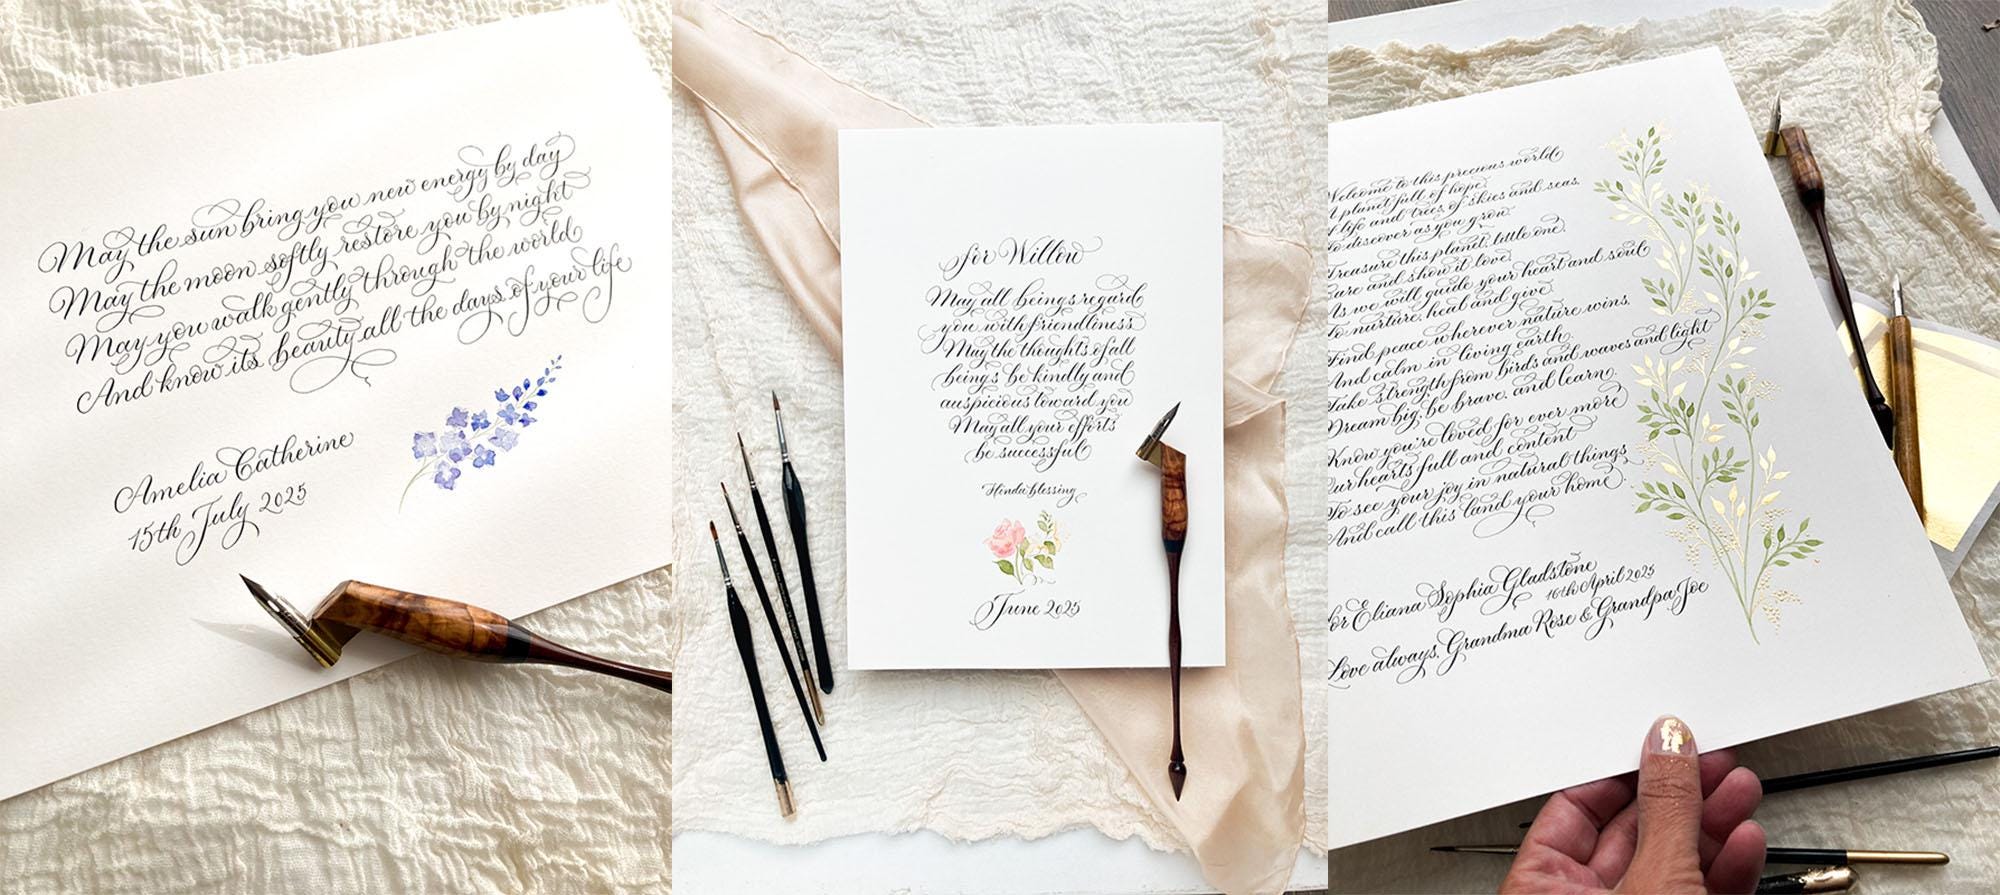 May the sun bring you new energy by day
May the moon softly restore you by night
May you walk gently through the world
And know its beauty all the days of your life
Amelia Catherine
15th July 2025
for Willow
May all beings regard
you with friendliness
May the thoughts of all
beings be kindly and
auspicious toward you
May all your efforts
be successful
Hindu blessing
June 2025
Welcome to this precious world
A planet full of hope.
Of life and trees of skies and seas.
To discover as you grow.
Treasure this planet, little one.
Care and show it love.
As we will guide your heart and soul
To nurture, heal and give
Find peace wherever nature wins.
And calm in living earth.
Take strength from birds and waves and light
Dream big, be brave, and learn.
Know you're loved for ever more
Our hearts full and content
To see your joy in natural things
And call this land your home.
for Eliana Sophia Gladstone
16th April 2025
Love always, Grandma Rose & Grandpa Joe